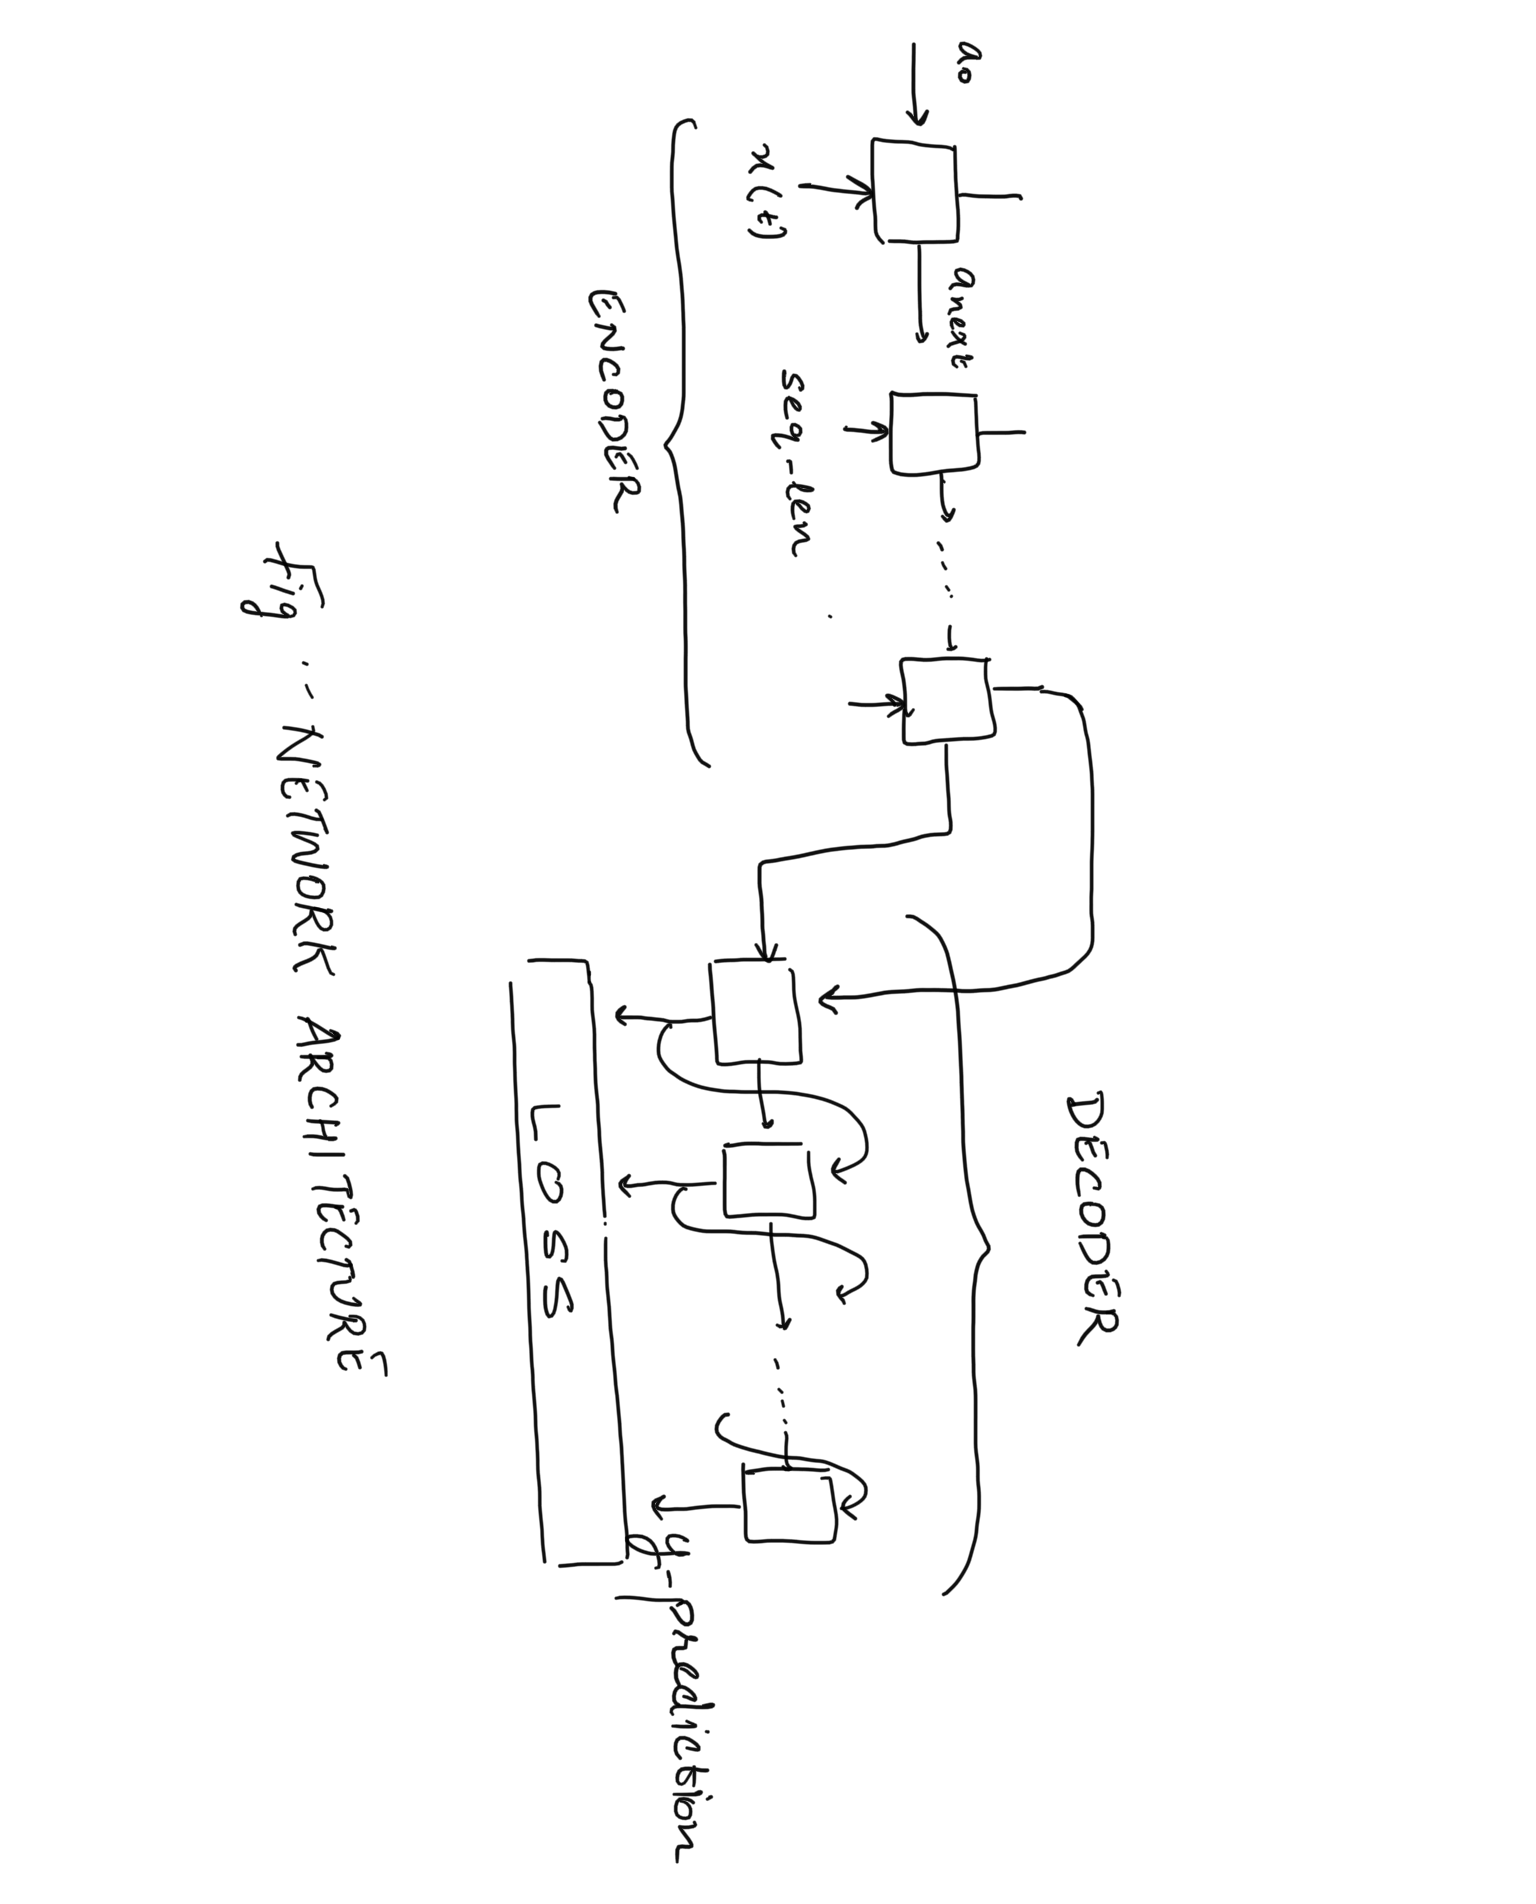 a0
anext
x(t)
seq-len
ENCODER
DECODER
y-prediction
LOSS
fig :- NETWORK ARCHITECTURE